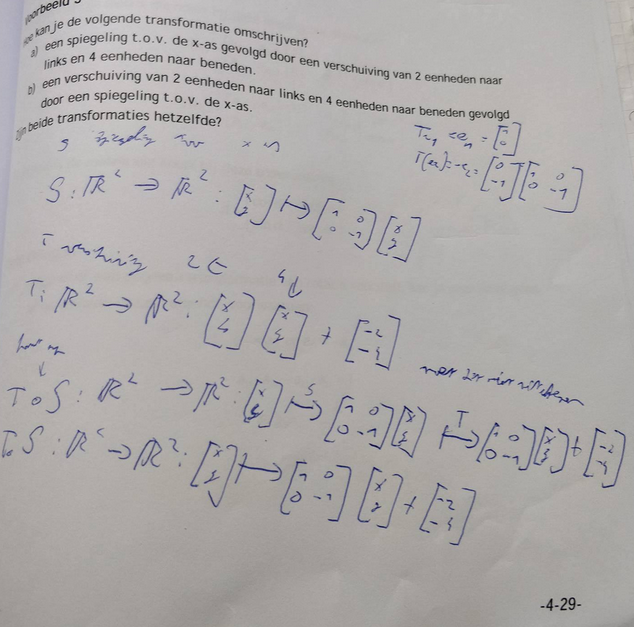 Voorbeeld
Hoe kan je de volgende transformatie omschrijven?
a) een spiegeling t.o.v. de x-as gevolgd door een verschuiving van 2 eenheden naar
links en 4 eenheden naar beneden.
b) een verschuiving van 2 eenheden naar links en 4 eenheden naar beneden gevolgd
door een spiegeling t.o.v. de x-as.
Zijn beide transformaties hetzelfde?
S spiegeling tov x as
S : ℝ² → ℝ² : [x y] ↦ [1 0 0 -1] [x y]
T verschuiving 2 ← 4 ↓
T : ℝ² → ℝ² : [x y] + [-2 -4]
T∘S : ℝ² → ℝ² : [x y] ↦ S [1 0 0 -1] [x y] ↦ T [1 0 0 -1] [x y] + [-2 -4]
T∘S : ℝ² → ℝ² : [x y] ↦ [1 0 0 -1] [x y] + [-2 -4]
-4-29-